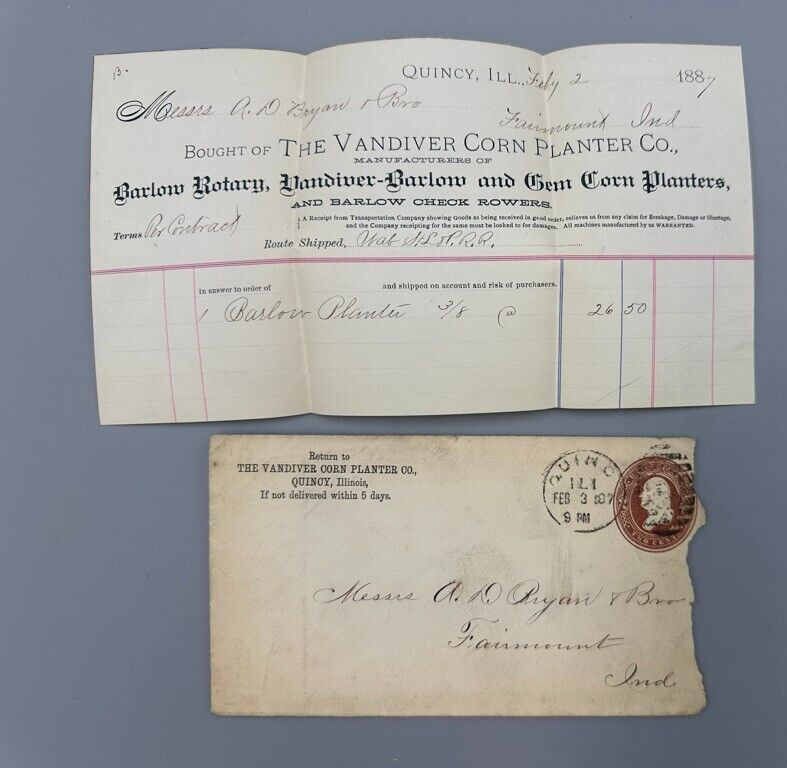 B.
QUINCY, ILL., Feby 2 1887
Messrs A. D. Bryan & Bro
Fairmount Ind
BOUGHT OF THE VANDIVER CORN PLANTER CO.,
MANUFACTURERS OF
Barlow Rotary, Vandiver-Barlow and Gem Corn Planters,
AND BARLOW CHECK ROWERS.
Terms Per Contract
{ A Receipt from Transportation Company showing Goods as being received in good order, relieves us from any claim for Breakage, Damage or Shortage,
and the Company receipting for the same must be looked to for damages. All machines manufactured by us WARRANTED.
Route Shipped, Wab St L & P. R. R.
In answer to order of and shipped on account and risk of purchasers.
1 Barlow Planter 3/8 @ 26 50
Return to
THE VANDIVER CORN PLANTER CO.,
QUINCY, Illinois,
If not delivered within 5 days.
QUINCY
ILL
FEB 3 187
9 PM
TWO CENTS
Messrs A. D. Bryan & Bro
Fairmount
Ind